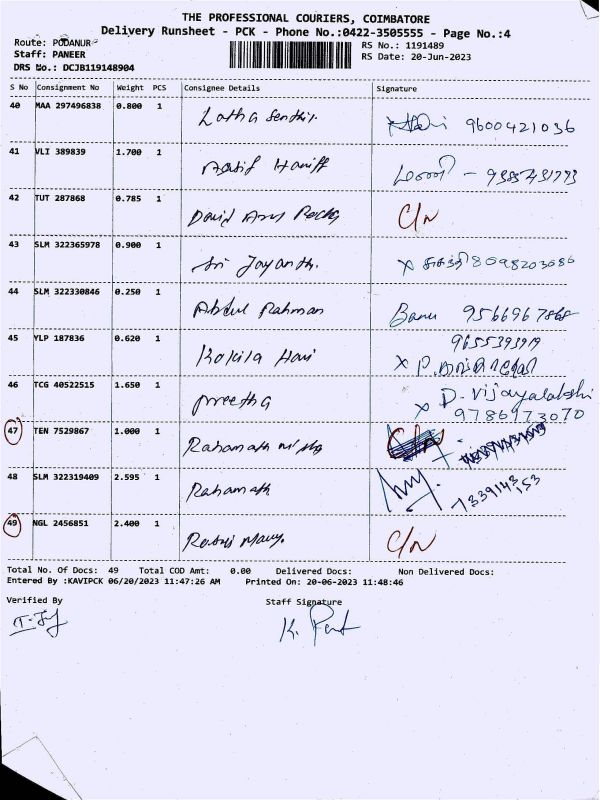 THE PROFESSIONAL COURIERS, COIMBATORE
Delivery Runsheet - PCK - Phone No.:0422-3505555 - Page No.:4
Route: PODANUR
RS No.: 1191489
Staff: PANEER
RS Date: 20-Jun-2023
DRS No.: DCJB119148904
S No Consignment No Weight PCS Consignee Details Signature
40 MAA 297496838 0.800 1 Latha Senthil. 9600421036
41 VLI 389839 1.700 1 Aasif Haniff
42 TUT 287868 0.785 1 David C/N
43 SLM 322365978 0.900 1 Sri Jayanthi. x 8098203086
44 SLM 322330846 0.250 1 Abdul Rahman Banu 9566967868
45 YLP 187836 0.620 1 Kokila Hari 9655393919
x P.
46 TCG 40522515 1.650 1 Preetha x D. Vijayalakshi
9786973070
47 TEN 7529867 1.000 1 Rahamath
48 SLM 322319409 2.595 1 Rahamath 7339143153
49 NGL 2456851 2.400 1 C/N
Total No. Of Docs: 49 Total COD Amt: 0.00 Delivered Docs: Non Delivered Docs:
Entered By :KAVIPCK 06/20/2023 11:47:26 AM Printed On: 20-06-2023 11:48:46
Verified By Staff Signature